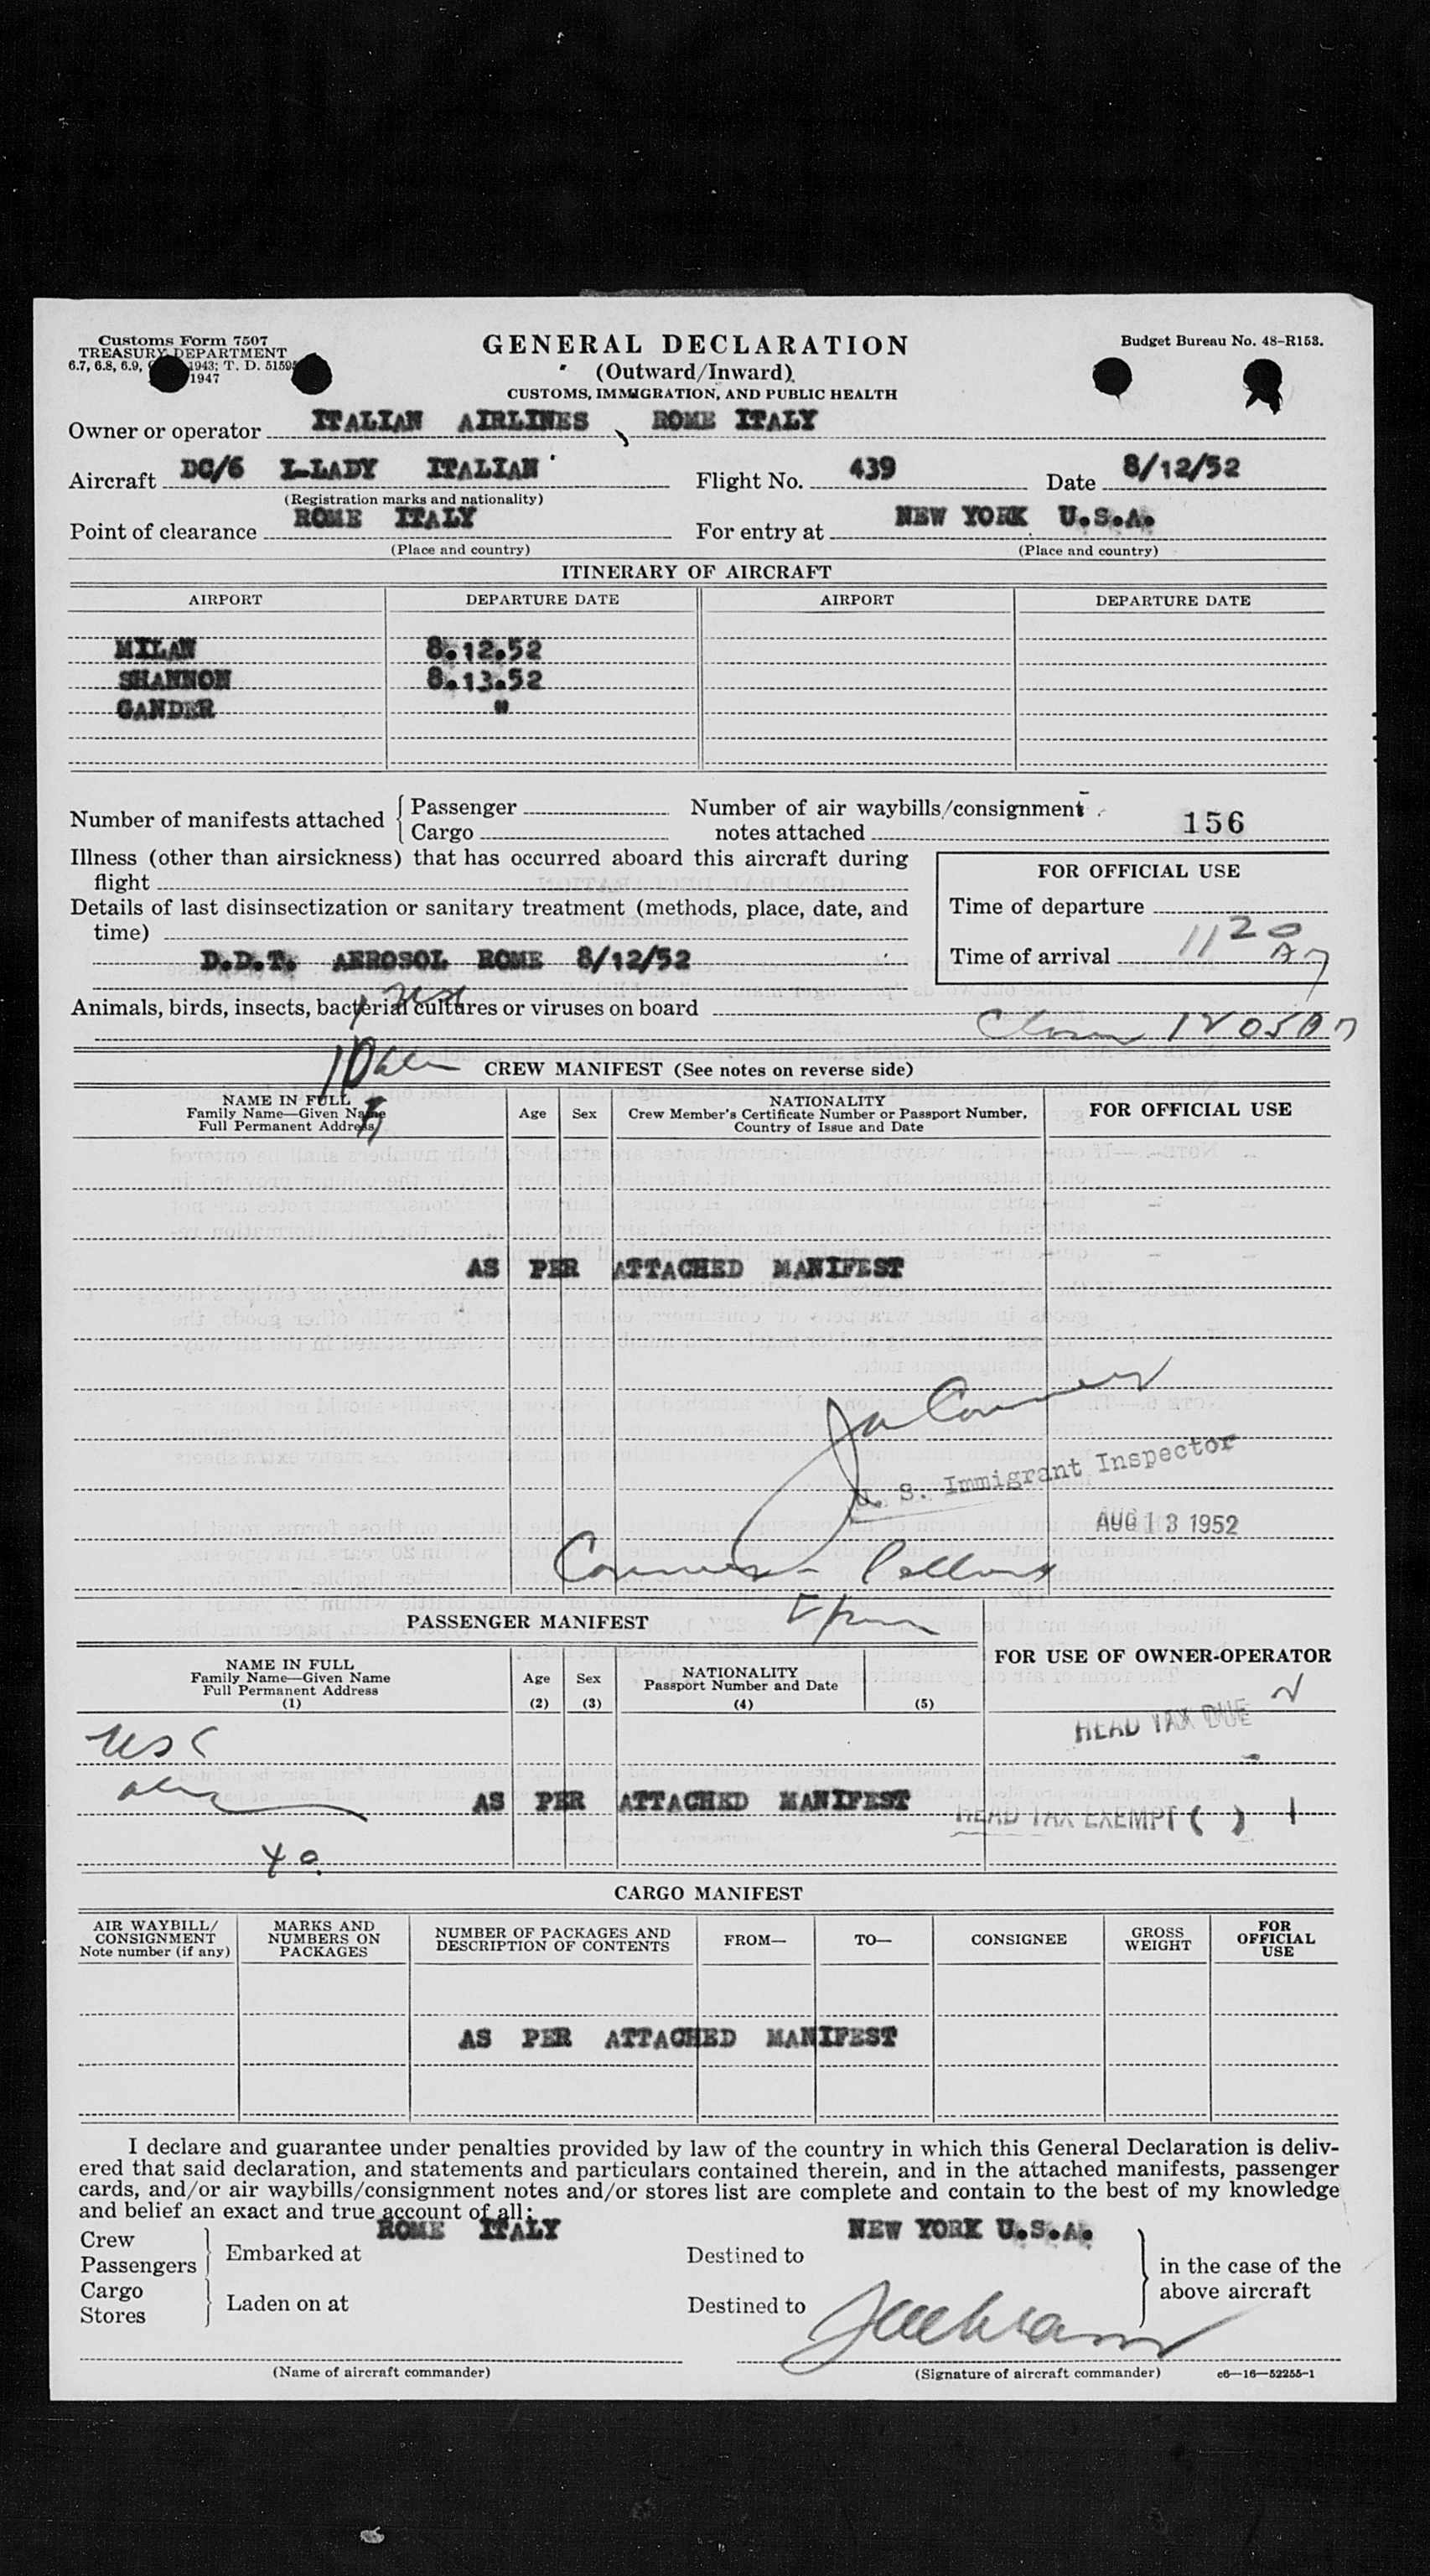 Customs Form 7507
TREASURY DEPARTMENT
6.7, 6.8, 6.9, 1943; T. D. 5159
1947
GENERAL DECLARATION
(Outward/Inward)
CUSTOMS, IMMIGRATION, AND PUBLIC HEALTH
Budget Bureau No. 48-R153.
Owner or operator ITALIAN AIRLINES , ROME ITALY
Aircraft DC/6 I-LADY ITALIAN Flight No. 439 Date 8/12/52
(Registration marks and nationality)
Point of clearance ROME ITALY For entry at NEW YORK U.S.A.
(Place and country) (Place and country)
ITINERARY OF AIRCRAFT
AIRPORT DEPARTURE DATE AIRPORT DEPARTURE DATE
MILAN 8.12.52
SHANNON 8.13.52
GANDER "
Number of manifests attached { Passenger
Cargo
Number of air waybills/consignment
notes attached 156
Illness (other than airsickness) that has occurred aboard this aircraft during
flight
Details of last disinsectization or sanitary treatment (methods, place, date, and
time)
D.D.T. AEROSOL ROME 8/12/52
FOR OFFICIAL USE
Time of departure
Time of arrival 1120
Animals, birds, insects, bacterial cultures or viruses on board
CREW MANIFEST (See notes on reverse side)
NAME IN FULL
Family Name—Given Name
Full Permanent Address
Age Sex
NATIONALITY
Crew Member's Certificate Number or Passport Number,
Country of Issue and Date
FOR OFFICIAL USE
AS PER ATTACHED MANIFEST
U. S. Immigrant Inspector
AUG 13 1952
PASSENGER MANIFEST
NAME IN FULL
Family Name—Given Name
Full Permanent Address
(1)
Age
(2)
Sex
(3)
NATIONALITY
Passport Number and Date
(4) (5)
FOR USE OF OWNER-OPERATOR
HEAD TAX DUE
USC
AS PER ATTACHED MANIFEST
HEAD TAX EXEMPT ( )
CARGO MANIFEST
AIR WAYBILL/
CONSIGNMENT
Note number (if any)
MARKS AND
NUMBERS ON
PACKAGES
NUMBER OF PACKAGES AND
DESCRIPTION OF CONTENTS
FROM—
TO—
CONSIGNEE
GROSS
WEIGHT
FOR
OFFICIAL
USE
AS PER ATTACHED MANIFEST
I declare and guarantee under penalties provided by law of the country in which this General Declaration is deliv-
ered that said declaration, and statements and particulars contained therein, and in the attached manifests, passenger
cards, and/or air waybills/consignment notes and/or stores list are complete and contain to the best of my knowledge
and belief an exact and true account of all:
Crew
Passengers } Embarked at ROME ITALY Destined to NEW YORK U.S.A.
Cargo
Stores } Laden on at Destined to
} in the case of the
above aircraft
(Name of aircraft commander) (Signature of aircraft commander) c6—16—52255-1